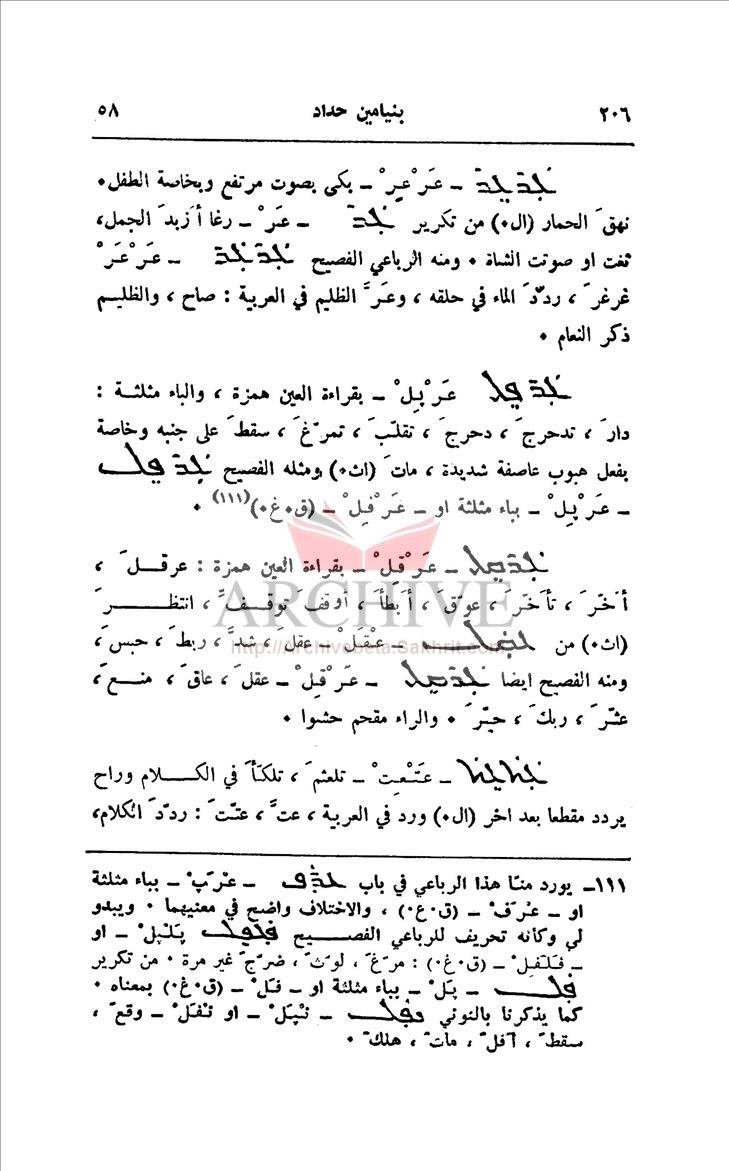 ٢٠٦ بنيامين حداد ٥٨
ܥܪܥܪ ــ عَرْعِرْ ــ بكى بصوت مرتفع وبخاصة الطفل٠
نهقَ الحمار (ال٠) من تكرير ܥܪ ــ عَرْ ــ رغا أزبدَ الجمل،
ثغت او صوتت الشاة ٠ ومنه الرباعي الفصيح ܥܪܥܪ ــ عَرْعَرْ
غرغرَ ، ردّدَ الماء في حلقه ، وعَرَّ الظليم في العربية : صاح ، والظليم
ذكر النعام ٠
ܥܪܦܠ عَرْپِلْ ــ بقراءة العين همزة ، والباء مثلثة :
دارَ ، تدحرجَ ، دحرجَ ، تقلّبَ ، تمرّغَ ، سقطَ على جنبه وخاصة
بفعل هبوب عاصفة شديدة ، ماتَ (اث٠) ومثله الفصيح ܥܪܦܠ
ــ عَرْپِلْ ــ بباء مثلثة او ــ عَرْفِلْ ــ (ق٠غ٠)(١١١) ٠
ܥܪܩܠ ــ عَرْقِلْ ــ بقراءة العين همزة : عرقلَ ،
أخّرَ ، تأخّرَ ، عوّقَ ، أبطأَ ، أوقفَ توقفَّ ، انتظرَ
(اث٠) من ܥܩܠ ــ عْقَلْ ــ عقلَ ، شدَّ ، ربطَ ، حبسَ ،
ومنه الفصيح ايضا ܥܪܩܠ ــ عَرْقِلْ ــ عقلَ ، عاقَ ، منعَ ،
عثّرَ ، ربكَ ، حيّرَ ٠ والراء مقحم حشوا ٠
ܥܬܥܬ ــ عَتْعِتْ ــ تلعثمَ ، تلكّأَ في الكلام وراح
يردد مقطعا بعد اخر (ال٠) ورد في العربية ، عتَّ ، عتّتَ : ردّدَ الكلام،
١١١ــ يورد منّا هذا الرباعي في باب ܥܪܦ ــ عْرَپْ ــ بباء مثلثة
او ــ عْرَفْ ــ (ق٠غ٠) ، والاختلاف واضح في معنييهما ٠ ويبدو
لي وكأنه تحريف للرباعي الفصيح ܦܠܦܠ پَلْپِلْ ــ او
ــ فَلْفِلْ ــ (ق٠غ٠) : مرّغَ ، لوّثَ ، ضرّجَ غير مرة ٠ من تكرير
ܦܠ ــ پَلْ ــ بباء مثلثة او ــ فَلْ ــ (ق٠غ٠) بمعناه ٠
كما يذكرنا بالنوني ܢܦܠ ــ نْپَلْ ــ او نْفَلْ ــ وقعَ ،
سقطَ ، أفلَ ، ماتَ ، هلكَ ٠
ARCHIVE
http://Archivebeta.Sakhrit.com